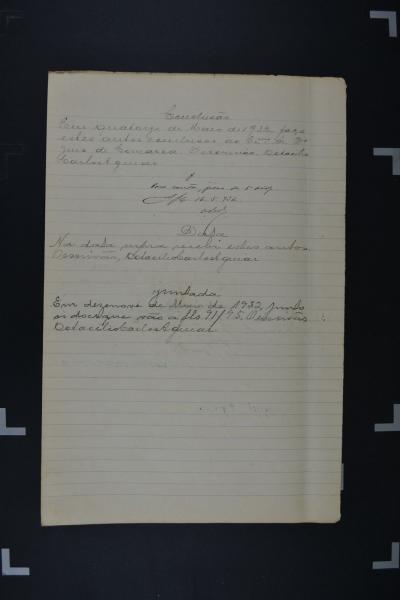 Conclusão
Em quatorze de Maio de 1932 faço
estes autos conclusos ao Exmo Sr. Dr
Juiz de Comarca. O escrivão, Octacilio
Carlos Aguiar
16. 5. 932
Data
Na data supra recebi estes autos.
O escrivão, Octacilio Carlos Aguiar
juntada
Em dezenove de Maio de 1932, junto
os docs que vão a fls 91/95. O escrivão
Octacilio Carlos Aguiar